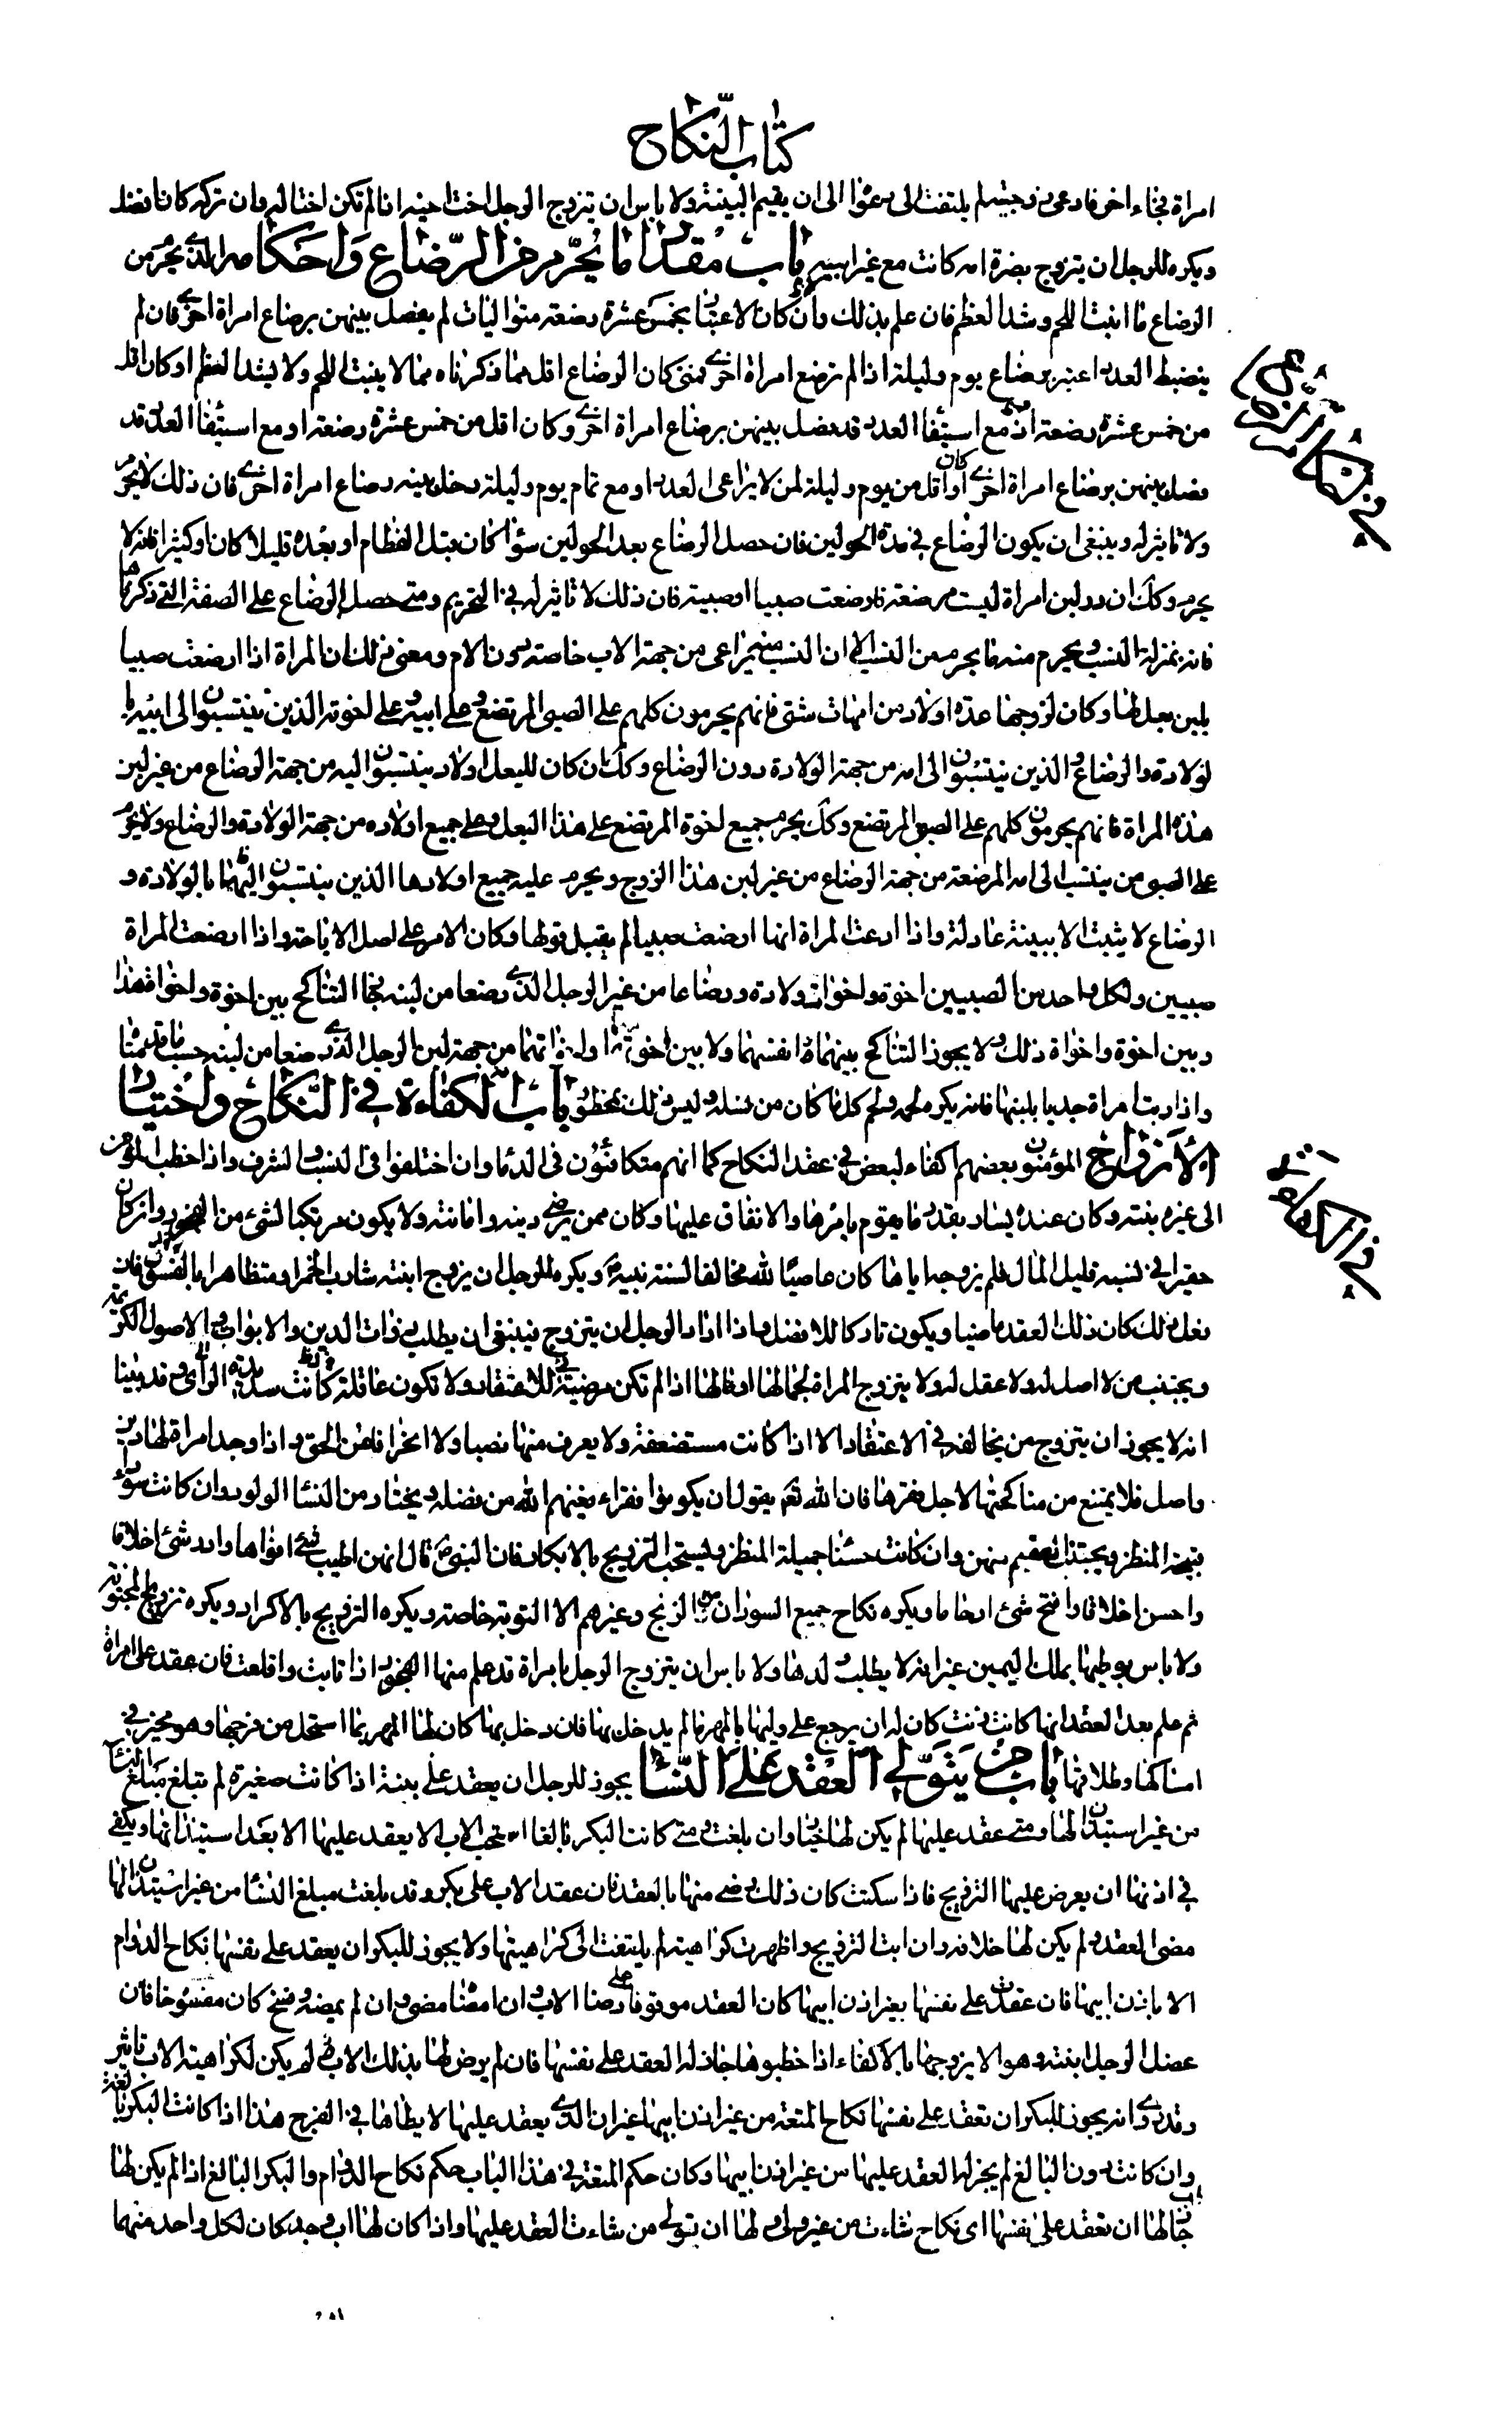 كتاب النكاح
امراة فجاء اخر فادعى زوجيتها لم يلتفت الى دعواه الى ان يقيم البينة ولا باس ان يتزوج الرجل اخت اخيه اذا لم تكن اختا له وان تركه كان افضل
ويكره للرجل ان يتزوج بضرة امه كانت مع غير ابيه باب مقدار ما يحرم من الرضاع واحكامه الذي يحرم من
الرضاع ما انبت اللحم وشد العظم فان علم بذلك والا كان الاعتبار بخمس عشرة رضعة متواليات لم يفصل بينهن برضاع امراة اخرى فان لم
ينضبط العدد اعتبر برضاع يوم وليلة اذا لم ترضع امراة اخرى فمتى كان الرضاع اقل مما ذكرناه مما لا ينبت اللحم ولا يشد العظم او كان اقل
من خمس عشرة رضعة او مع استيفاء العدد قد فصل بينهن برضاع امراة اخرى وكان اقل من خمس عشرة رضعة او مع استيفاء العدد قد
فصل بينهن برضاع امراة اخرى او كان اقل من يوم وليلة لمن لا يراعى العدد او مع تمام يوم وليلة دخل بينه رضاع امراة اخرى فان ذلك لا يحرم
ولا تاثير له وينبغى ان يكون الرضاع في مدة الحولين فان حصل الرضاع بعد الحولين سواء كان قبل الفطام او بعده قليلا كان او كثيرا فانه لا
يحرم وكك ان در لبن امراة ليست مرضعة فارضعت صبيا او صبية فان ذلك لا تاثير له في التحريم ومتى حصل الرضاع على الصفة التي ذكرناها
فانه بمنزلة النسب ويحرم منه ما يحرم من النسب الا ان النسب منه يراعى من جهة الاب خاصة دون الام ومعنى ذلك ان المراة اذا ارضعت صبيا
بلبن بعل لها وكان لزوجها عدة اولاد من امهات شتى فانهم يحرمون كلهم على الصبى المرتضع وعلى ابيه وعلى اخوته الذين ينتسبون الى ابيه با
لولادة والرضاع والذين ينتسبون الى امه من جهة الولادة دون الرضاع وكك ان كان للبعل اولاد ينتسبون اليه من جهة الرضاع من غير لبن
هذه المراة فانهم يحرمون كلهم على الصبى المرتضع وكك يحرم جميع اخوة المرتضع على هذا البعل وعلى جميع اولاده من جهة الولادة والرضاع ولا يحرم
على الصبى من ينتسب الى امه المرضعة من جهة الرضاع من غير لبن هذا الزوج ويحرم عليه جميع اولادها الذين ينتسبون اليها بالولادة و
الرضاع لا يثبت الا ببينة عادلة واذا ادعت المراة انها ارضعت صبيا لم يقبل قولها وكان الامر على اصل الاباحة واذا ارضعت المراة
صبيين ولكل واحد من الصبيين اخوة واخوات ولادة ورضاعا من غير الرجل الذي رضعا من لبنه جاز التناكح بين اخوة واخوات هذا
وبين اخوة واخوات ذلك ولا يجوز التناكح بينهما انفسهما ولا بين اخوتهما واخواتهما من جهة لبن الرجل الذي رضعا من لبنه حسب ما قدمناه
واذا ربت امراة جديا بلبنها فانه يكره لحمه ولحم كل ما كان من نسله وليس ذلك بمحظور باب الكفاءة في النكاح واختيار
الازواج المؤمنون بعضهم اكفاء لبعض في عقد النكاح كما انهم متكافئون في الدماء وان اختلفوا في النسب والشرف واذا خطب المؤمن
الى غيره بنته وكان عنده يسار بقدر ما يقوم بامرها والانفاق عليها وكان ممن يرضى دينه وامانته ولا يكون مرتكبا لشىء من الفجور وان كان
حقيرا في نسبه قليل المال فلم يزوجه اياها كان عاصيا لله مخالفا لسنة نبيه ص ويكره للرجل ان يزوج ابنته شارب الخمر او متظاهرا بالفسوق فان
فعل ذلك كان ذلك العقد ماضيا ويكون تاركا للافضل واذا اراد الرجل ان يتزوج فينبغى ان يطلب ذوات الدين والابوات والاصول الكريمة
ويجتنب من لا اصل له ولا عقل له ولا يتزوج المراة لجمالها او مالها اذا لم تكن مرضية في الاعتقاد ولا تكون عاقلة كانت سديدة الراى وقد بينا
انه لا يجوز ان يتزوج من يخالفه في الاعتقاد الا اذا كانت مستضعفة ولا يعرف منها نصبا ولا انحرافا عن الحق واذا وجد امراة لها دين
واصل فلا يمتنع من مناكحتها لاجل فقرها فان الله تعالى يقول ان يكونوا فقراء يغنهم الله من فضله ويختار من النساء الولود وان كانت سوداء
قبيحة المنظر ويجتنب العقيم منهن وان كانت حسناء جميلة المنظر ويستحب التزويج بالابكار فان النبى ص قال انهن اطيب شىء افواها وادر شىء اخلافا
واحسن اخلاقا وافتح شىء ارحاما ويكره نكاح جميع السودان من الزنج وغيرهم الا النوبة خاصة ويكره التزويج بالاكراد ويكره تزويج المجنونة
ولا باس بوطيها بملك اليمين غير انه لا يطلب ولدها ولا باس ان يتزوج الرجل بامراة قد علم منها الفجور اذا تابت واقلعت فان عقد على امراة
ثم علم بعد العقد انها كانت زنت كان له ان يرجع على وليها بالمهر ما لم يدخل بها فان دخل بها كان لها المهر بما استحل من فرجها وهو مخير في
امساكها وطلاقها باب من يتولى العقد على النساء يجوز للرجل ان يعقد على بنته اذا كانت صغيرة لم تبلغ مبلغ النساء
من غير استيذان لها ومتى عقد عليها لم يكن لها خيار وان بلغت ومتى كانت البكر بالغا استحب للاب الا يعقد عليها الا بعد استيذانها ويكفى
في اذنها ان يعرض عليها التزويج فاذا سكتت كان ذلك رضى منها بالعقد فان عقد الاب على بكر وقد بلغت مبلغ النساء من غير استيذان لها
مضى العقد ولم يكن لها خلافه وان ابت التزويج واظهرت كراهيته لم يلتفت الى كراهيتها ولا يجوز للبكر ان يعقد على نفسها نكاح الدوام
الا باذن ابيها فان عقدت على نفسها بغير اذن ابيها كان العقد موقوفا على رضا الاب وان امضاه مضى وان لم يمضه وفسخ كان مفسوخا فان
عضل الرجل ابنته وهو الا يزوجها بالاكفاء اذا خطبوها جاز لها العقد على نفسها فان لم يرض لها بذلك الاب لم يكن لكراهية الاب تاثير
وقد روى انه يجوز للبكر ان تعقد على نفسها نكاح المتعة من غير اذن ابيها غير ان الذي يعقد عليها لا يطاها في الفرج هذا اذا كانت البكر بالغة
وان كانت دون البالغ لم يجز لها العقد عليها من غير اذن ابيها وكان حكم المتعة في هذا الباب حكم نكاح الدوام والبكر البالغ اذا لم يكن لها
اب جاز لها ان تعقد على نفسها اى نكاح شاءت من غير ولى ولها ان يتولى من شاءت العقد عليها واذا كان لها اب وجد كان لكل واحد منهما
في الكفاءة